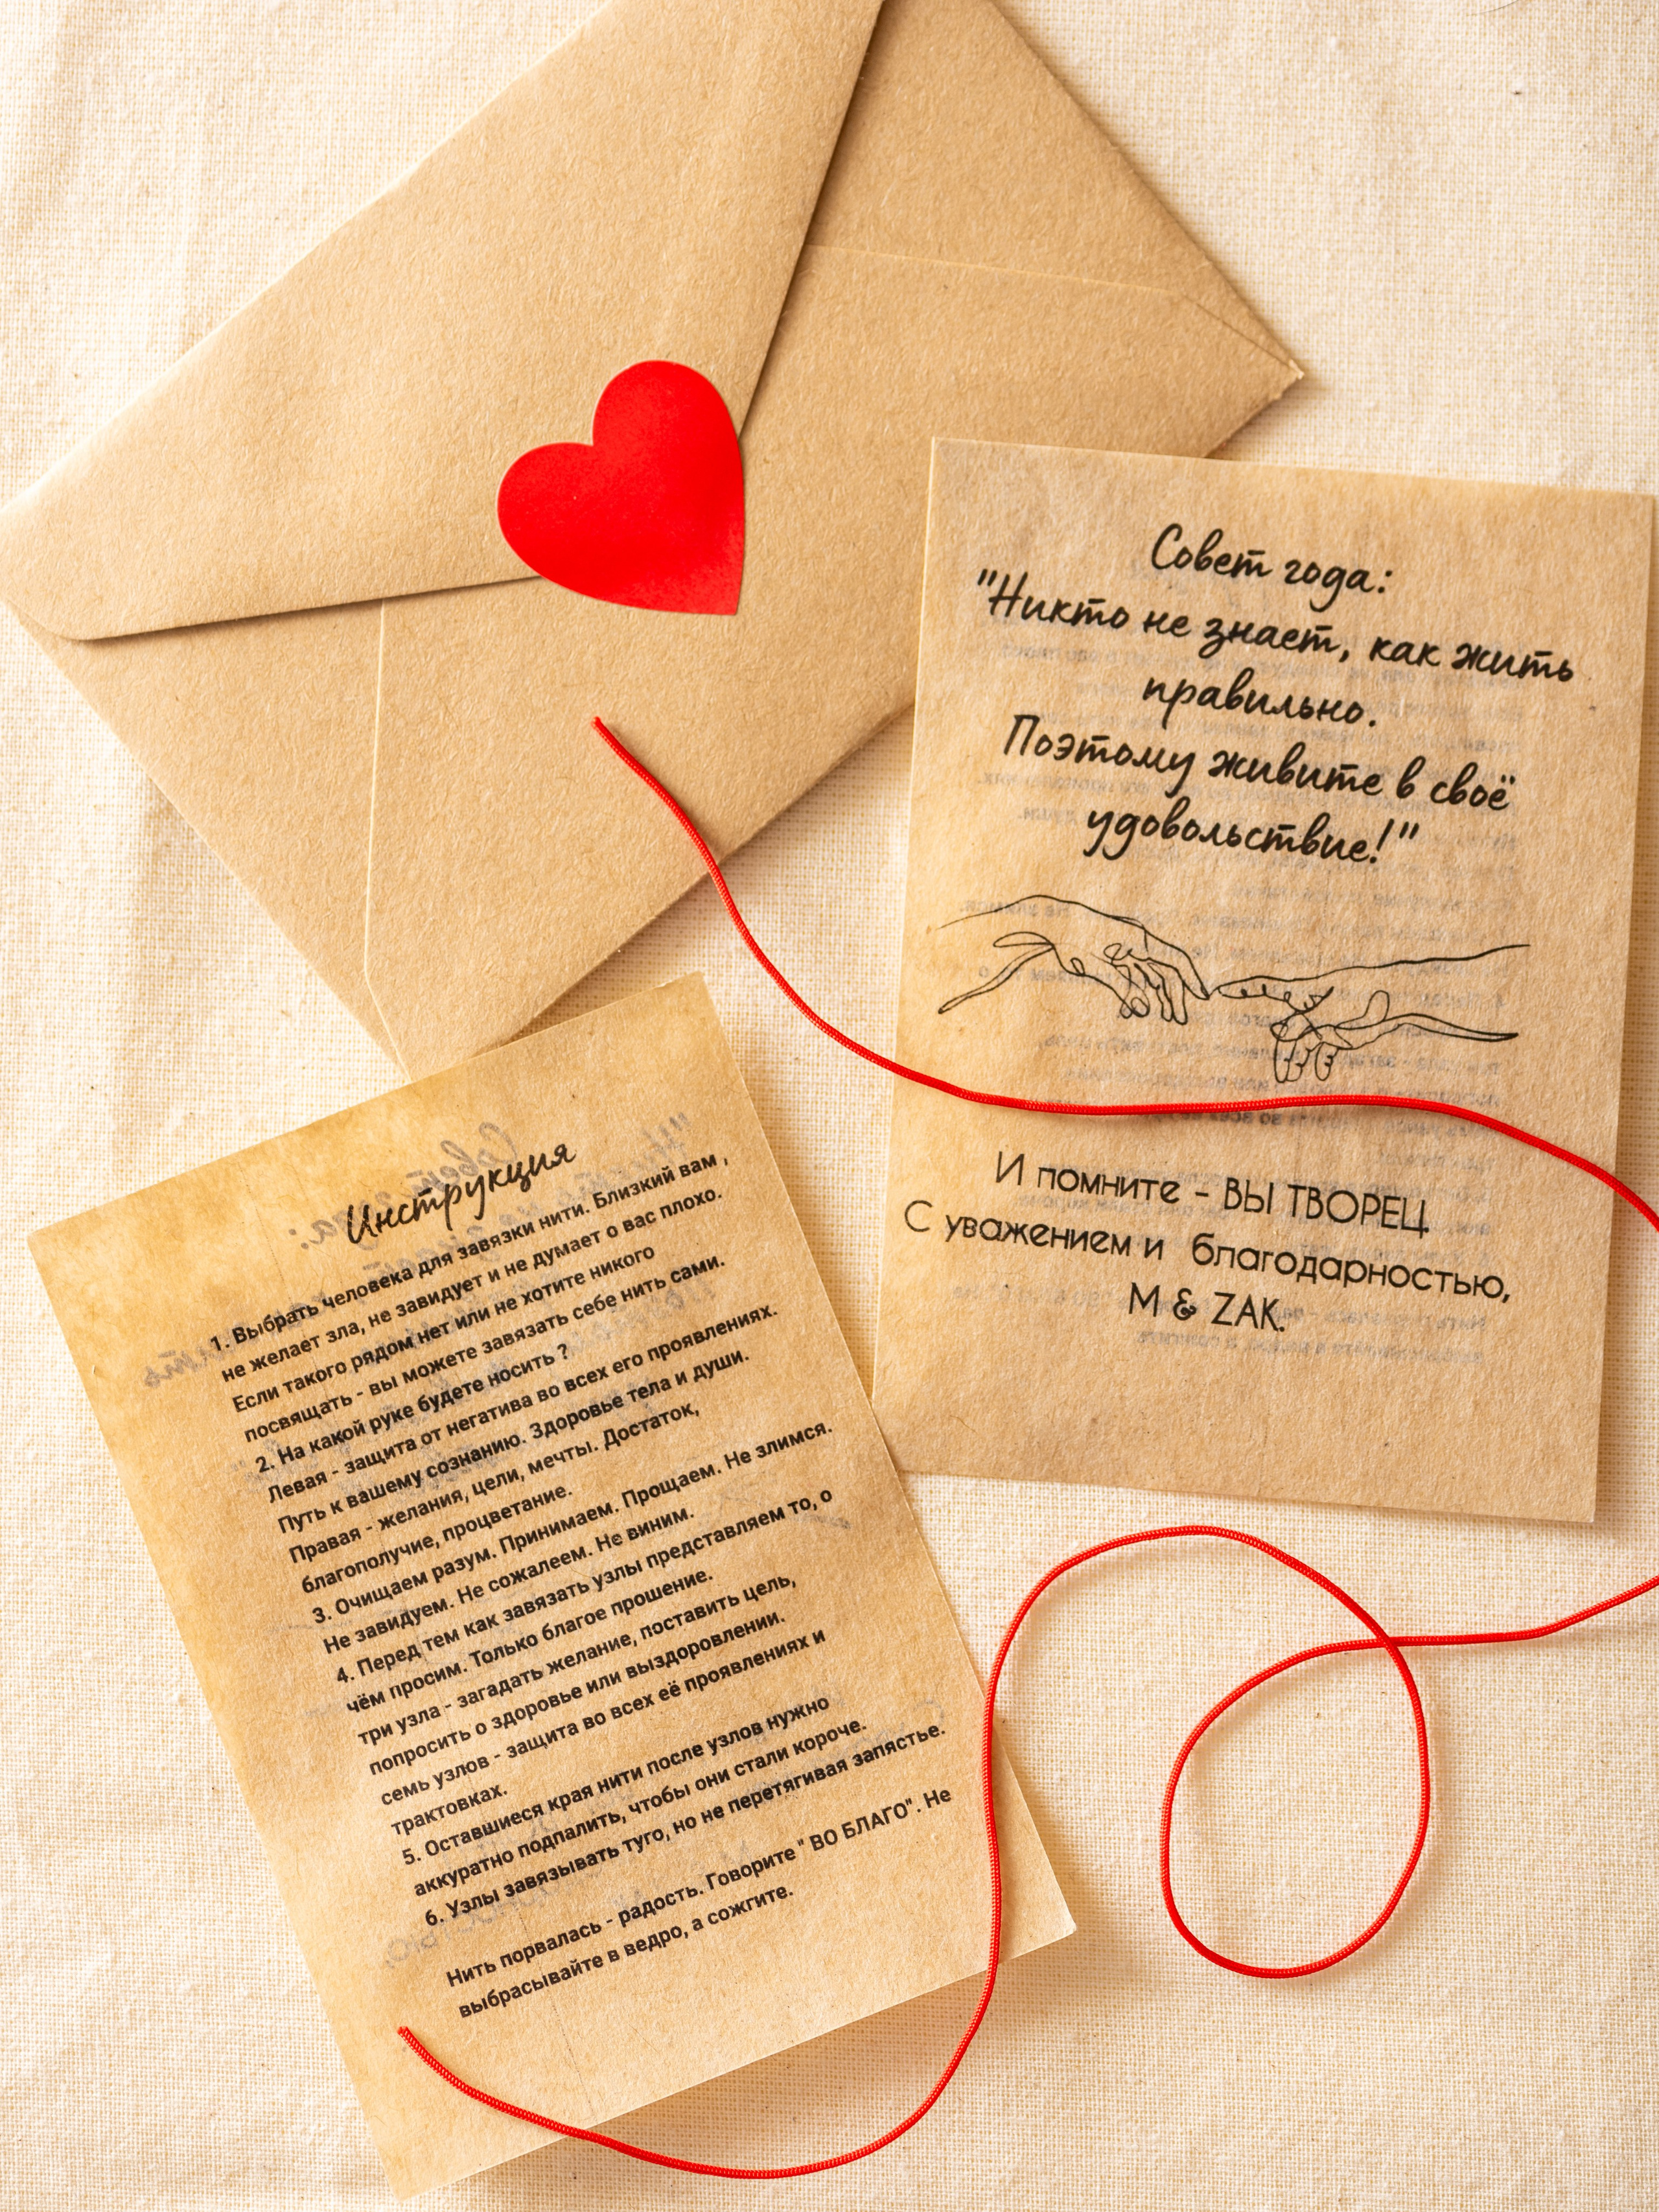 Совет года:
"Никто не знает, как жить
правильно.
Поэтому живите в своё
удовольствие!"
И помните - ВЫ ТВОРЕЦ.
С уважением и благодарностью,
M & ZAK.
Инструкция
1. Выбрать человека для завязки нити. Близкий вам ,
не желает зла, не завидует и не думает о вас плохо.
Если такого рядом нет или не хотите никого
посвящать - вы можете завязать себе нить сами.
2. На какой руке будете носить ?
Левая - защита от негатива во всех его проявлениях.
Путь к вашему сознанию. Здоровье тела и души.
Правая - желания, цели, мечты. Достаток,
благополучие, процветание.
3. Очищаем разум. Принимаем. Прощаем. Не злимся.
Не завидуем. Не сожалеем. Не виним.
4. Перед тем как завязать узлы представляем то, о
чём просим. Только благое прошение.
три узла - загадать желание, поставить цель,
попросить о здоровье или выздоровлении.
семь узлов - защита во всех её проявлениях и
трактовках.
5. Оставшиеся края нити после узлов нужно
аккуратно подпалить, чтобы они стали короче.
6. Узлы завязывать туго, но не перетягивая запястье.
Нить порвалась - радость. Говорите " ВО БЛАГО". Не
выбрасывайте в ведро, а сожгите.